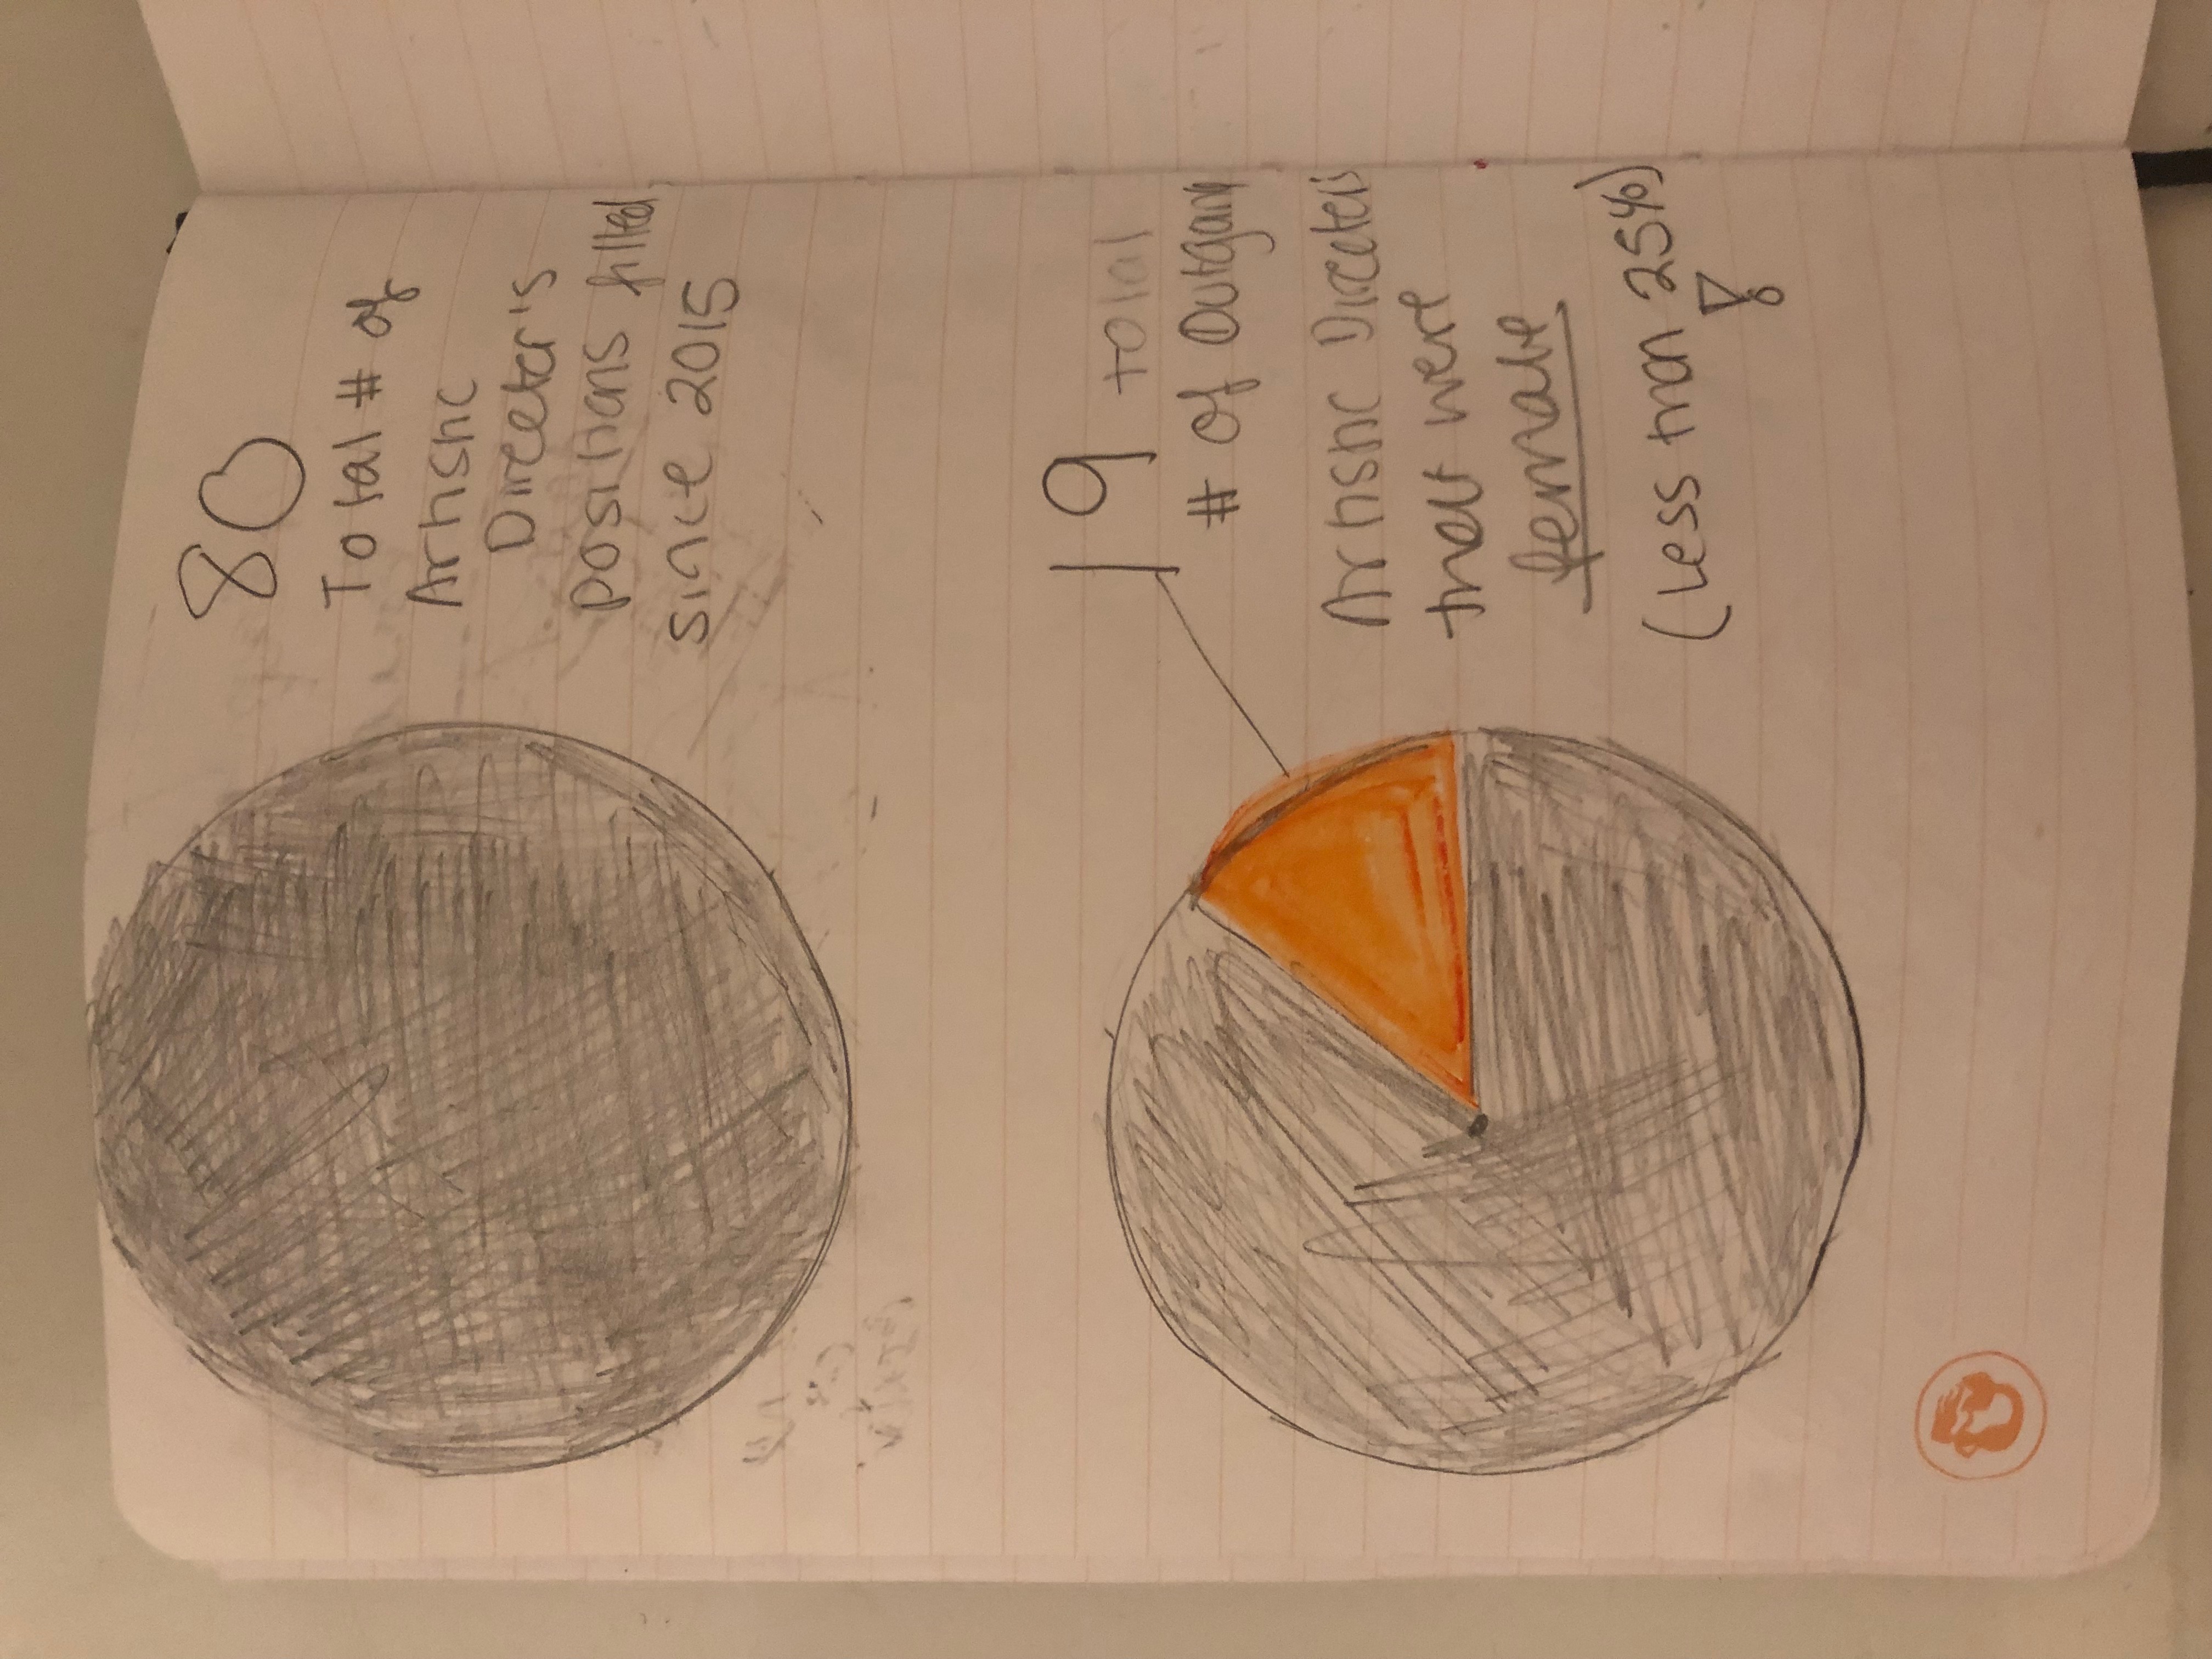 80
Total # of
Artistic
Director's
positions filled
since 2015
19 total
# of Outgoing
Artistic Director's
that were
female
(Less than 25%)
!